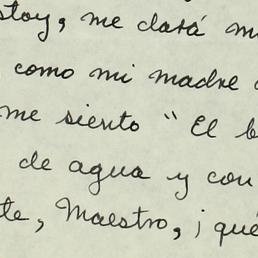 stoy, me dará m
como mi madre
me siento " El b
de agua y con
te, Maestro, ¡ qué